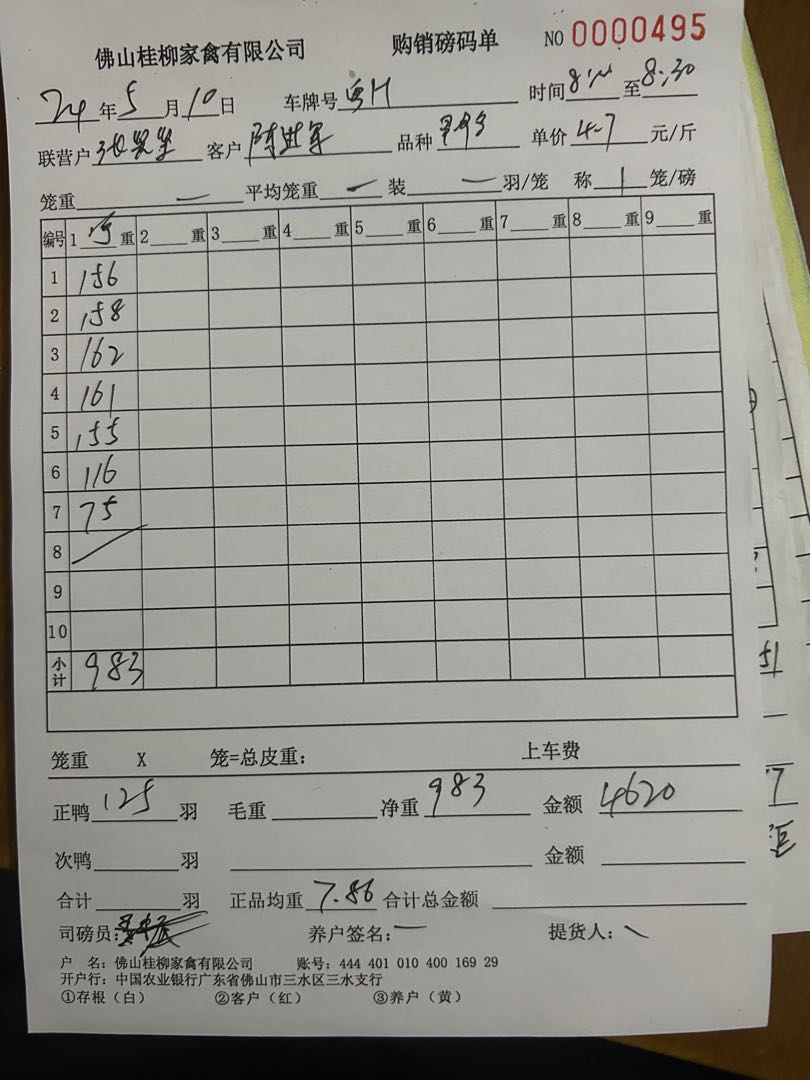 佛山桂柳家禽有限公司 购销磅码单 NO 0000495
24年5月10日 车牌号 粤H 时间 8: 至 8:30
联营户 客户 品种 单价 4.7 元/斤
笼重 — 平均笼重 — 装 — 羽/笼 称 1 笼/磅
编号 1 重 2 重 3 重 4 重 5 重 6 重 7 重 8 重 9 重
1 156
2 158
3 162
4 161
5 155
6 116
7 75
8
9
10
小计 983
笼重 X 笼=总皮重: 上车费
正鸭 125 羽 毛重 净重 983 金额 4620
次鸭 羽 金额
合计 羽 正品均重 7.86 合计总金额
司磅员: 养户签名: 提货人:
户 名: 佛山桂柳家禽有限公司 账号: 444 401 010 400 169 29
开户行: 中国农业银行广东省佛山市三水区三水支行
①存根(白) ②客户(红) ③养户(黄)